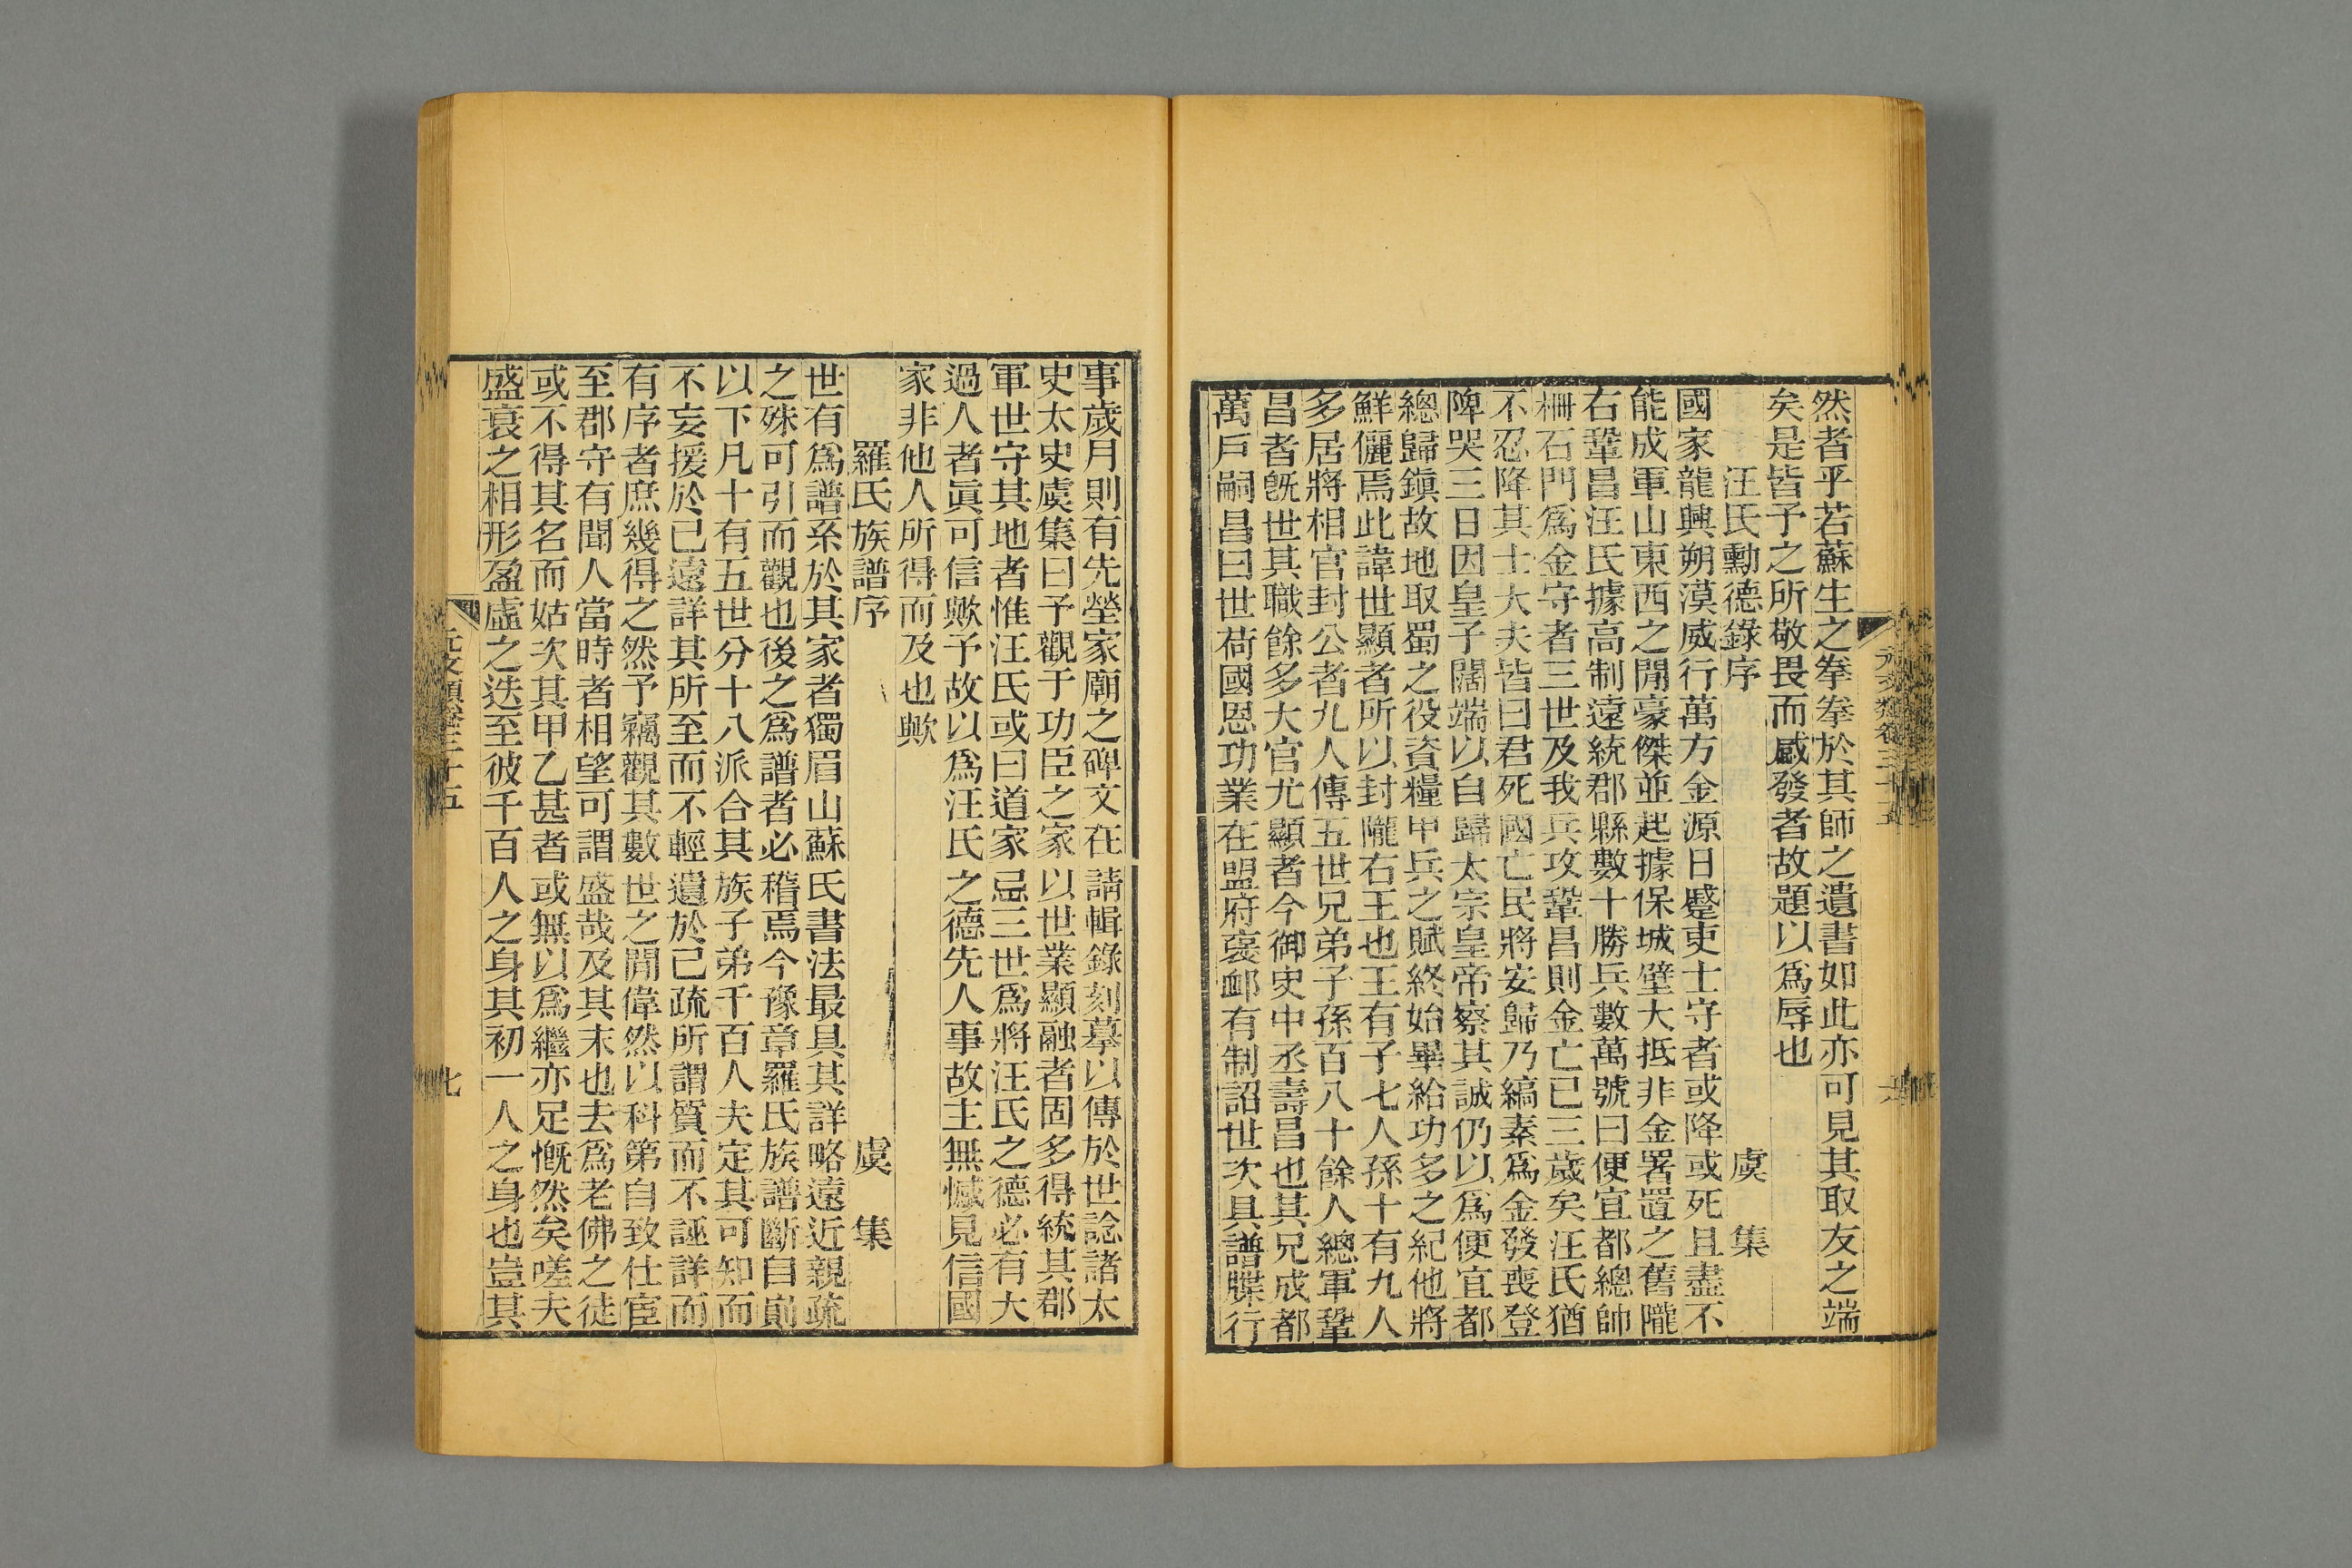 然者乎若蘇生之拳拳於其師之遺書如此亦可見其取友之端
矣是皆予之所敬畏而感發者故題以爲辱也
汪氏勳德錄序 虞集
國家龍興朔漠威行萬方金源日蹙吏士守者或降或死且盡不
能成軍山東西之閒豪傑並起據保城壁大抵非金署置之舊隴
右鞏昌汪氏據高制遠統郡縣數十勝兵數萬號曰便宜都總帥
柵石門爲金守者三世及我兵攻鞏昌則金亡已三歲矣汪氏猶
不忍降其士大夫皆曰君死國亡民將安歸乃縞素爲金發喪登
陴哭三日因皇子闊端以自歸太宗皇帝察其誠仍以爲便宜都
總歸鎮故地取蜀之役資糧甲兵之賦終始畢給功多之紀他將
鮮儷焉此諱世顯者所以封隴右王也王有子七人孫十有九人
多居將相官封公者九人傳五世兄弟子孫百八十餘人總軍鞏
昌者旣世其職餘多大官尤顯者今御史中丞壽昌也其兄成都
萬戶嗣昌曰世荷國恩功業在盟府褒卹有制詔世次具譜牒行
事歲月則有先塋家廟之碑文在請輯錄刻摹以傳於世諗諸太
史太史虞集曰予觀于功臣之家以世業顯融者固多得統其郡
軍世守其地者惟汪氏或曰道家忌三世爲將汪氏之德必有大
過人者眞可信歟予故以爲汪氏之德先人事故主無憾見信國
家非他人所得而及也歟
羅氏族譜序 虞集
世有爲譜系於其家者獨眉山蘇氏書法最具其詳略遠近親疏
之殊可引而觀也後之爲譜者必稽焉今豫章羅氏族譜斷自崱
以下凡十有五世分十八派合其族子弟千百人夫定其可知而
不妄援於已遠詳其所至而不輕遺於已疏所謂質而不誣詳而
有序者庶幾得之然予竊觀其數世之閒偉然以科第自致仕宦
至郡守有聞人當時者相望可謂盛哉及其末也去爲老佛之徒
或不得其名而姑次其甲乙甚者或無以爲繼亦足慨然矣嗟夫
盛衰之相形盈虛之迭至彼千百人之身其初一人之身也豈其
元文類卷三十五
七